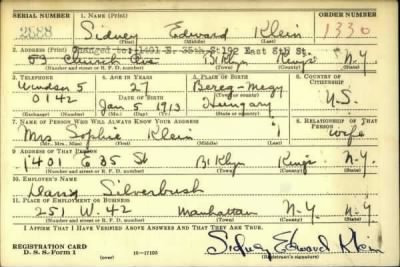 SERIAL NUMBER 1. NAME (Print) ORDER NUMBER
2588 Sidney Edward Klein 1330
(First) (Middle) (Last)
2. ADDRESS (Print) Changed to: 1401 E. 35th St 192 East 8th St.
59 Church Ave Bklyn Kings N-Y.
(Number and street or R. F. D. number) (Town) (County) (State)
3. TELEPHONE 4. AGE IN YEARS 5. PLACE OF BIRTH 6. COUNTRY OF CITIZENSHIP
Windsor 5 27 Bereg-megy
DATE OF BIRTH (Town or county)
0142 Jan 5 1913 Hungary U.S.
(Exchange) (Number) (Mo.) (Day) (Yr.) (State or country)
7. NAME OF PERSON WHO WILL ALWAYS KNOW YOUR ADDRESS 8. RELATIONSHIP OF THAT PERSON
Mrs Sophie Klein wife
(Mr., Mrs., Miss) (First) (Middle) (Last)
9. ADDRESS OF THAT PERSON
1401 E 35 St Bklyn Kings N-Y.
(Number and street or R. F. D. number) (Town) (County) (State)
10. EMPLOYER'S NAME
Silverbush
11. PLACE OF EMPLOYMENT OR BUSINESS
251 W. 42 Manhattan N-Y N-Y
(Number and street or R. F. D. number) (Town) (County) (State)
I AFFIRM THAT I HAVE VERIFIED ABOVE ANSWERS AND THAT THEY ARE TRUE.
REGISTRATION CARD
D. S. S. Form 1 (over) 16—17105 Sidney Edward Klein
(Registrant's signature)